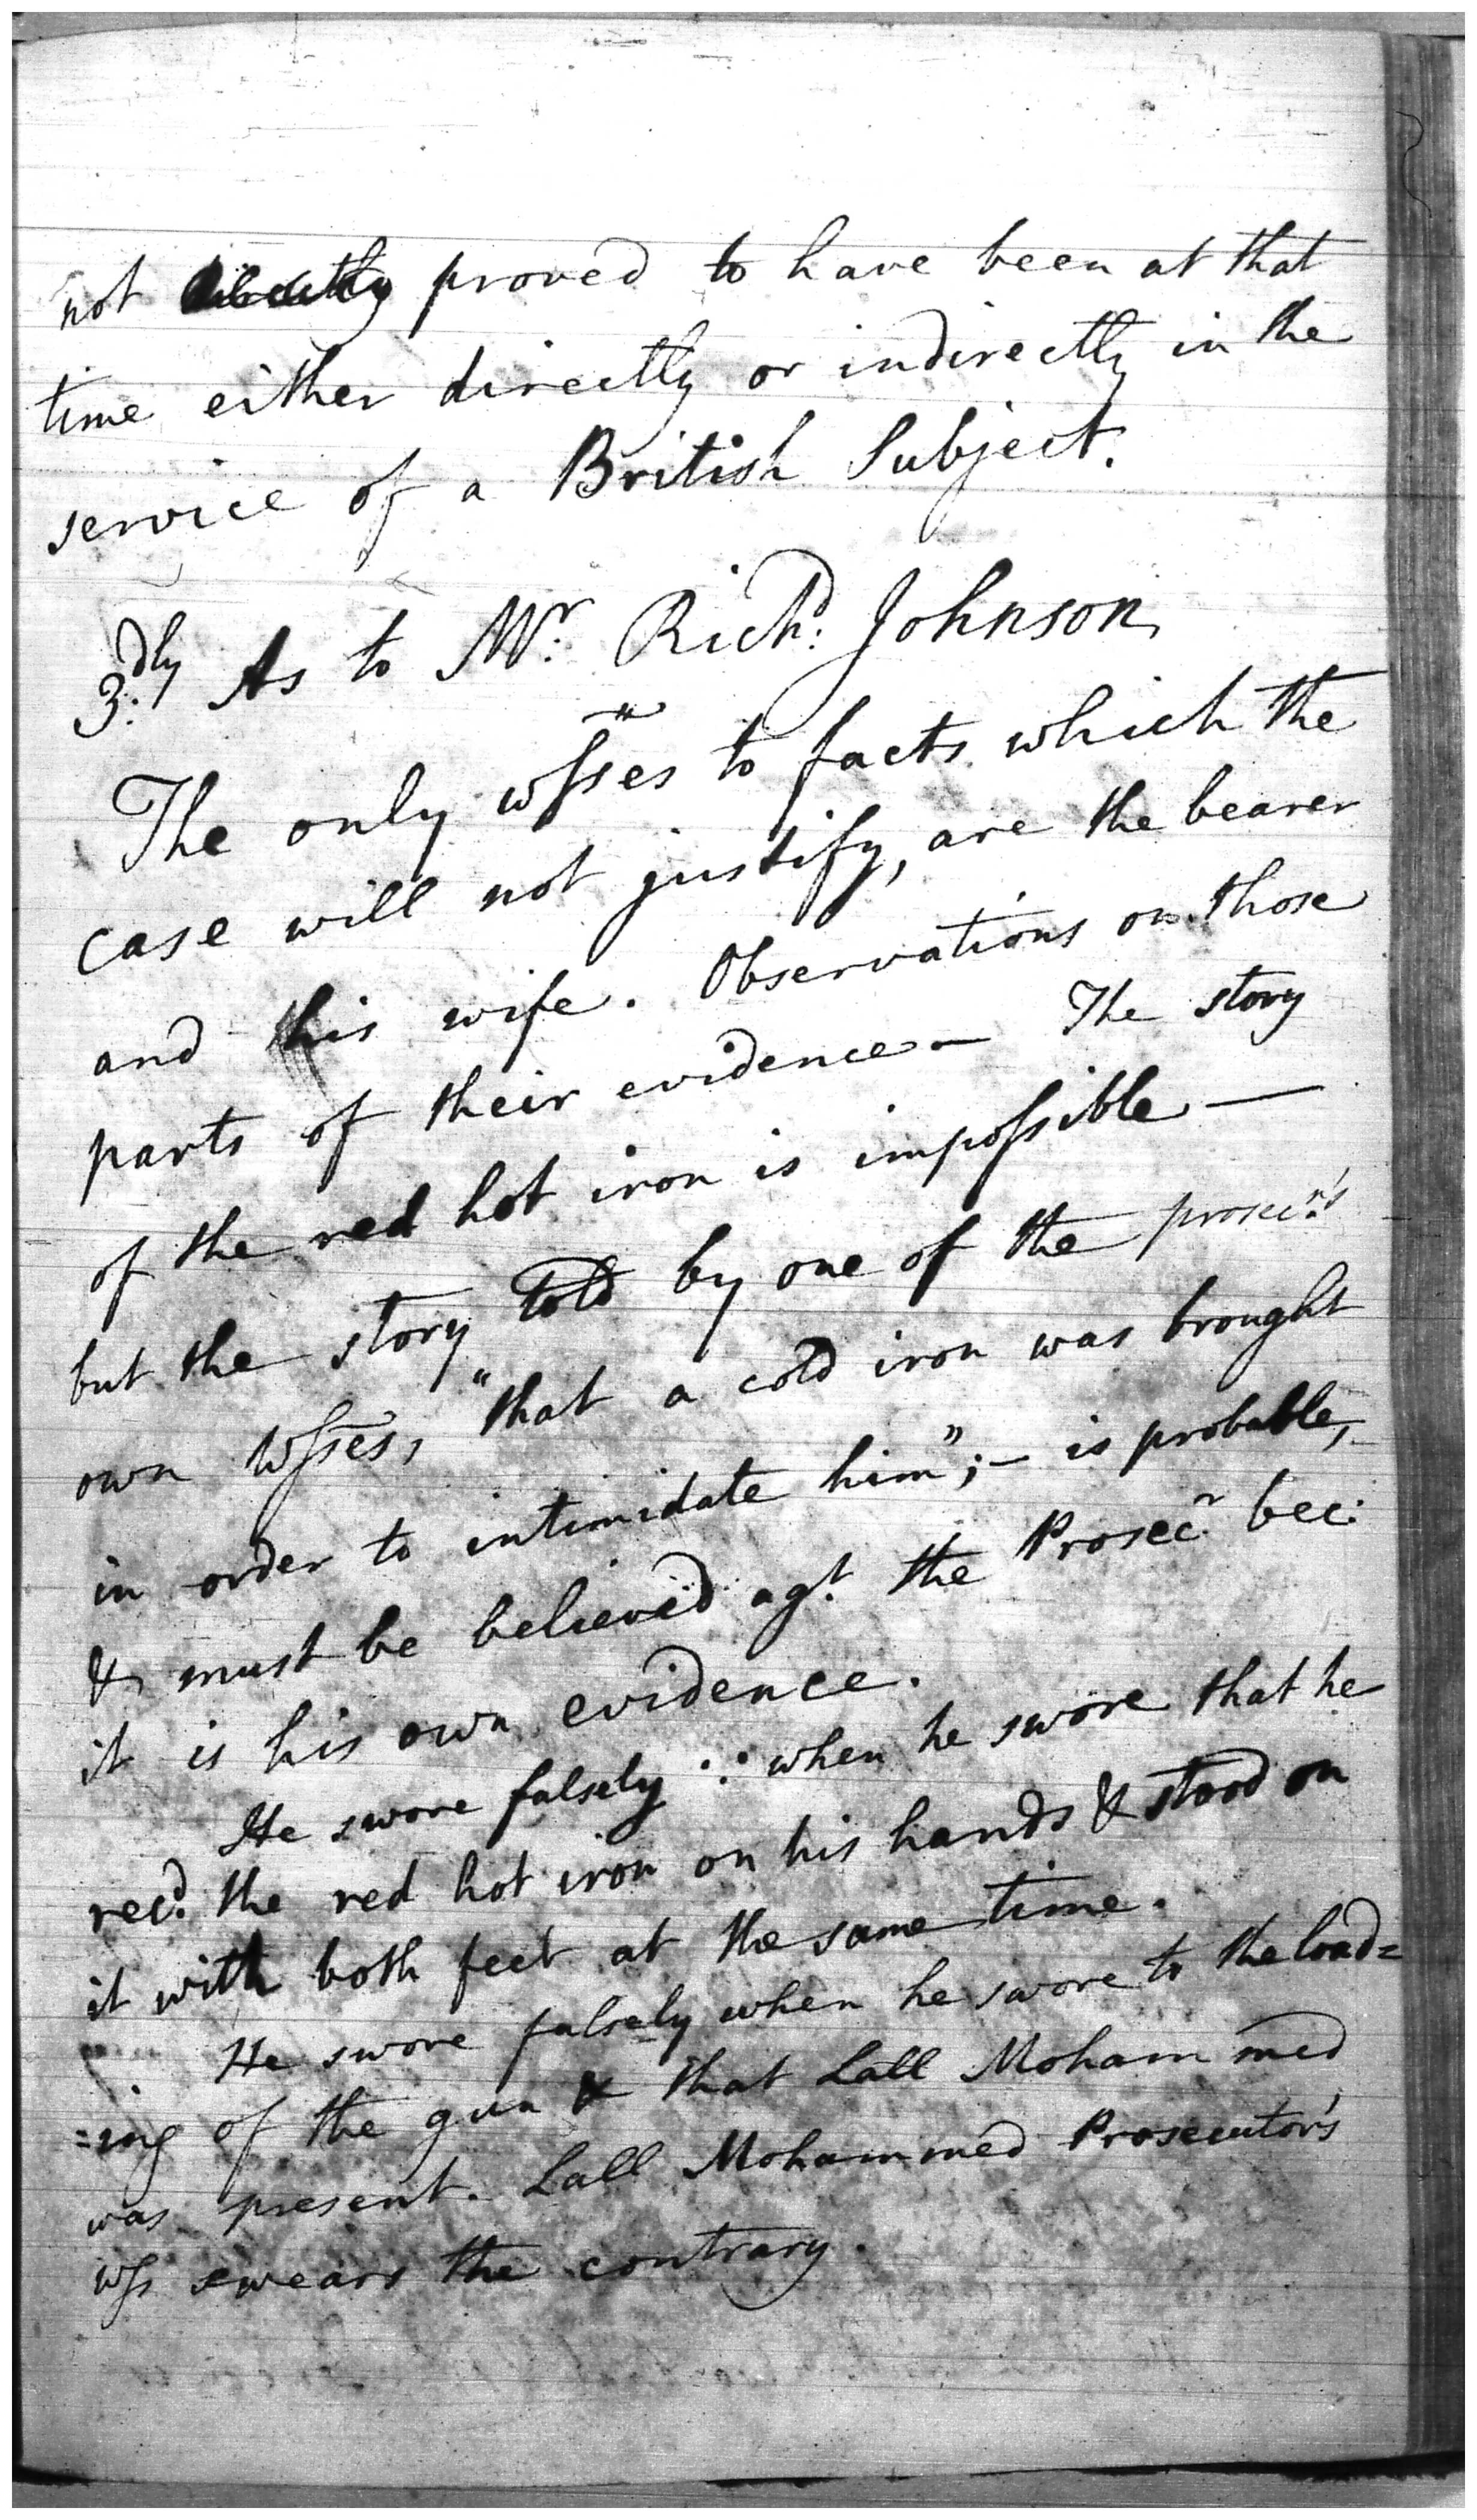 not directly proved to have been at that
time either directly or indirectly in the
service of a British Subject.
3.dly As to Mr. Richd. Johnson.
The only wſses to facts which the
case will not justify, are the bearer
and his wife. Observations on those
parts of their evidence — The story
of the red hot iron is impoſsible —
but the story told by one of the prosecr.'s
own wſses, "that a cold iron was brought
in order to intimidate him"; — is probable,
& must be believed agt. the Prosecr. bec:
it is his own evidence.
He swore falsely ∵ when he swore that he
recd. the red hot iron on his hands & stood on
it with both feet at the same time.
He swore falsely when he swore to the load=
=ing of the gun & that Lall Mohammed
was present. Lall Mohammed Prosecutor's
wſs swears the contrary.